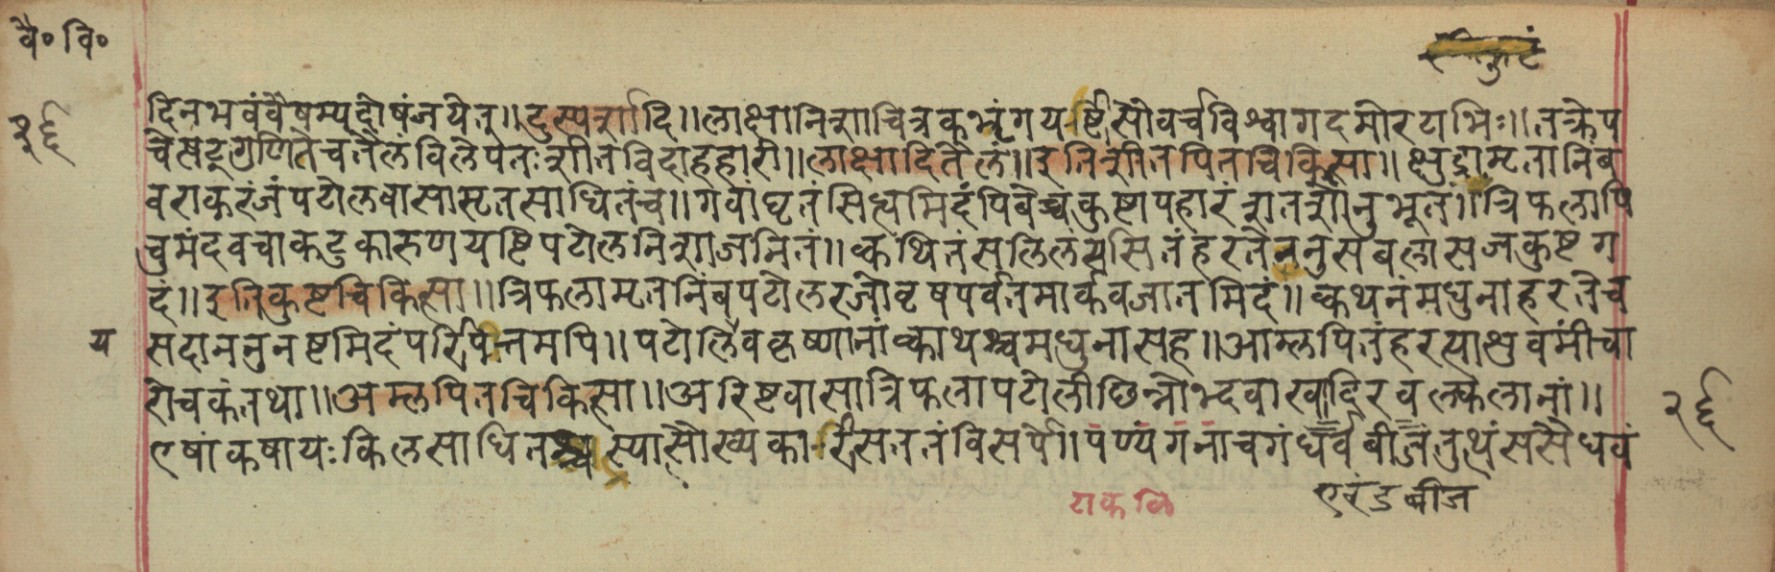 वै॰ वि॰
२६
दिनभवंवैषम्यदोषंजयेत्॥दुस्पर्शादि॥लाक्षानिशाचित्रकभृंगयष्टिसौवर्चविश्वागदमोरटाभिः॥तक्रेप
चेत्षट्गुणितेचतैलंविलेपतःशीतविदाहहारी॥लाक्षादितैलं॥इतिशीतपित्तचिकित्सा॥क्षुद्रामृतानिंब
वराकरंजंपटोलवासासृतसाधितंच॥गवांघृतंसिध्यमिदंपिबेच्चकुष्टापहारं
त्रिफलापि
चुमंदवचाकटुकारुणयष्टिपटोलनिशाजनितं॥क्वथितंसलिलं
हरतेननुसबलासजकुष्टग
दं॥इतिकुष्टचिकित्सा॥त्रिफलामृतनिंबपटोलरजोवृषपर्वतमार्कवजातमिदं॥क्वथनंमधुनाहरतेच
य
सदाननुनष्टमिदंपरिपित्तमपि॥पटोलविश्वकृष्णानांक्वाथश्चमधुनासह॥आम्लपित्तंहरत्याशुवमींचा
रोचकंतथा॥अम्लपित्तचिकित्सा॥अरिष्टवासात्रिफलापटोलीछिन्नोद्भवाखादिरवल्कलानां॥
२६
एषांकषायःकिलसाधितश्चस्यात्सौख्यकारीसततंविसर्पे॥पण्यंगनाचगंधर्वबीजंतुथंससैंधवं
टाककि
एरंडबीज